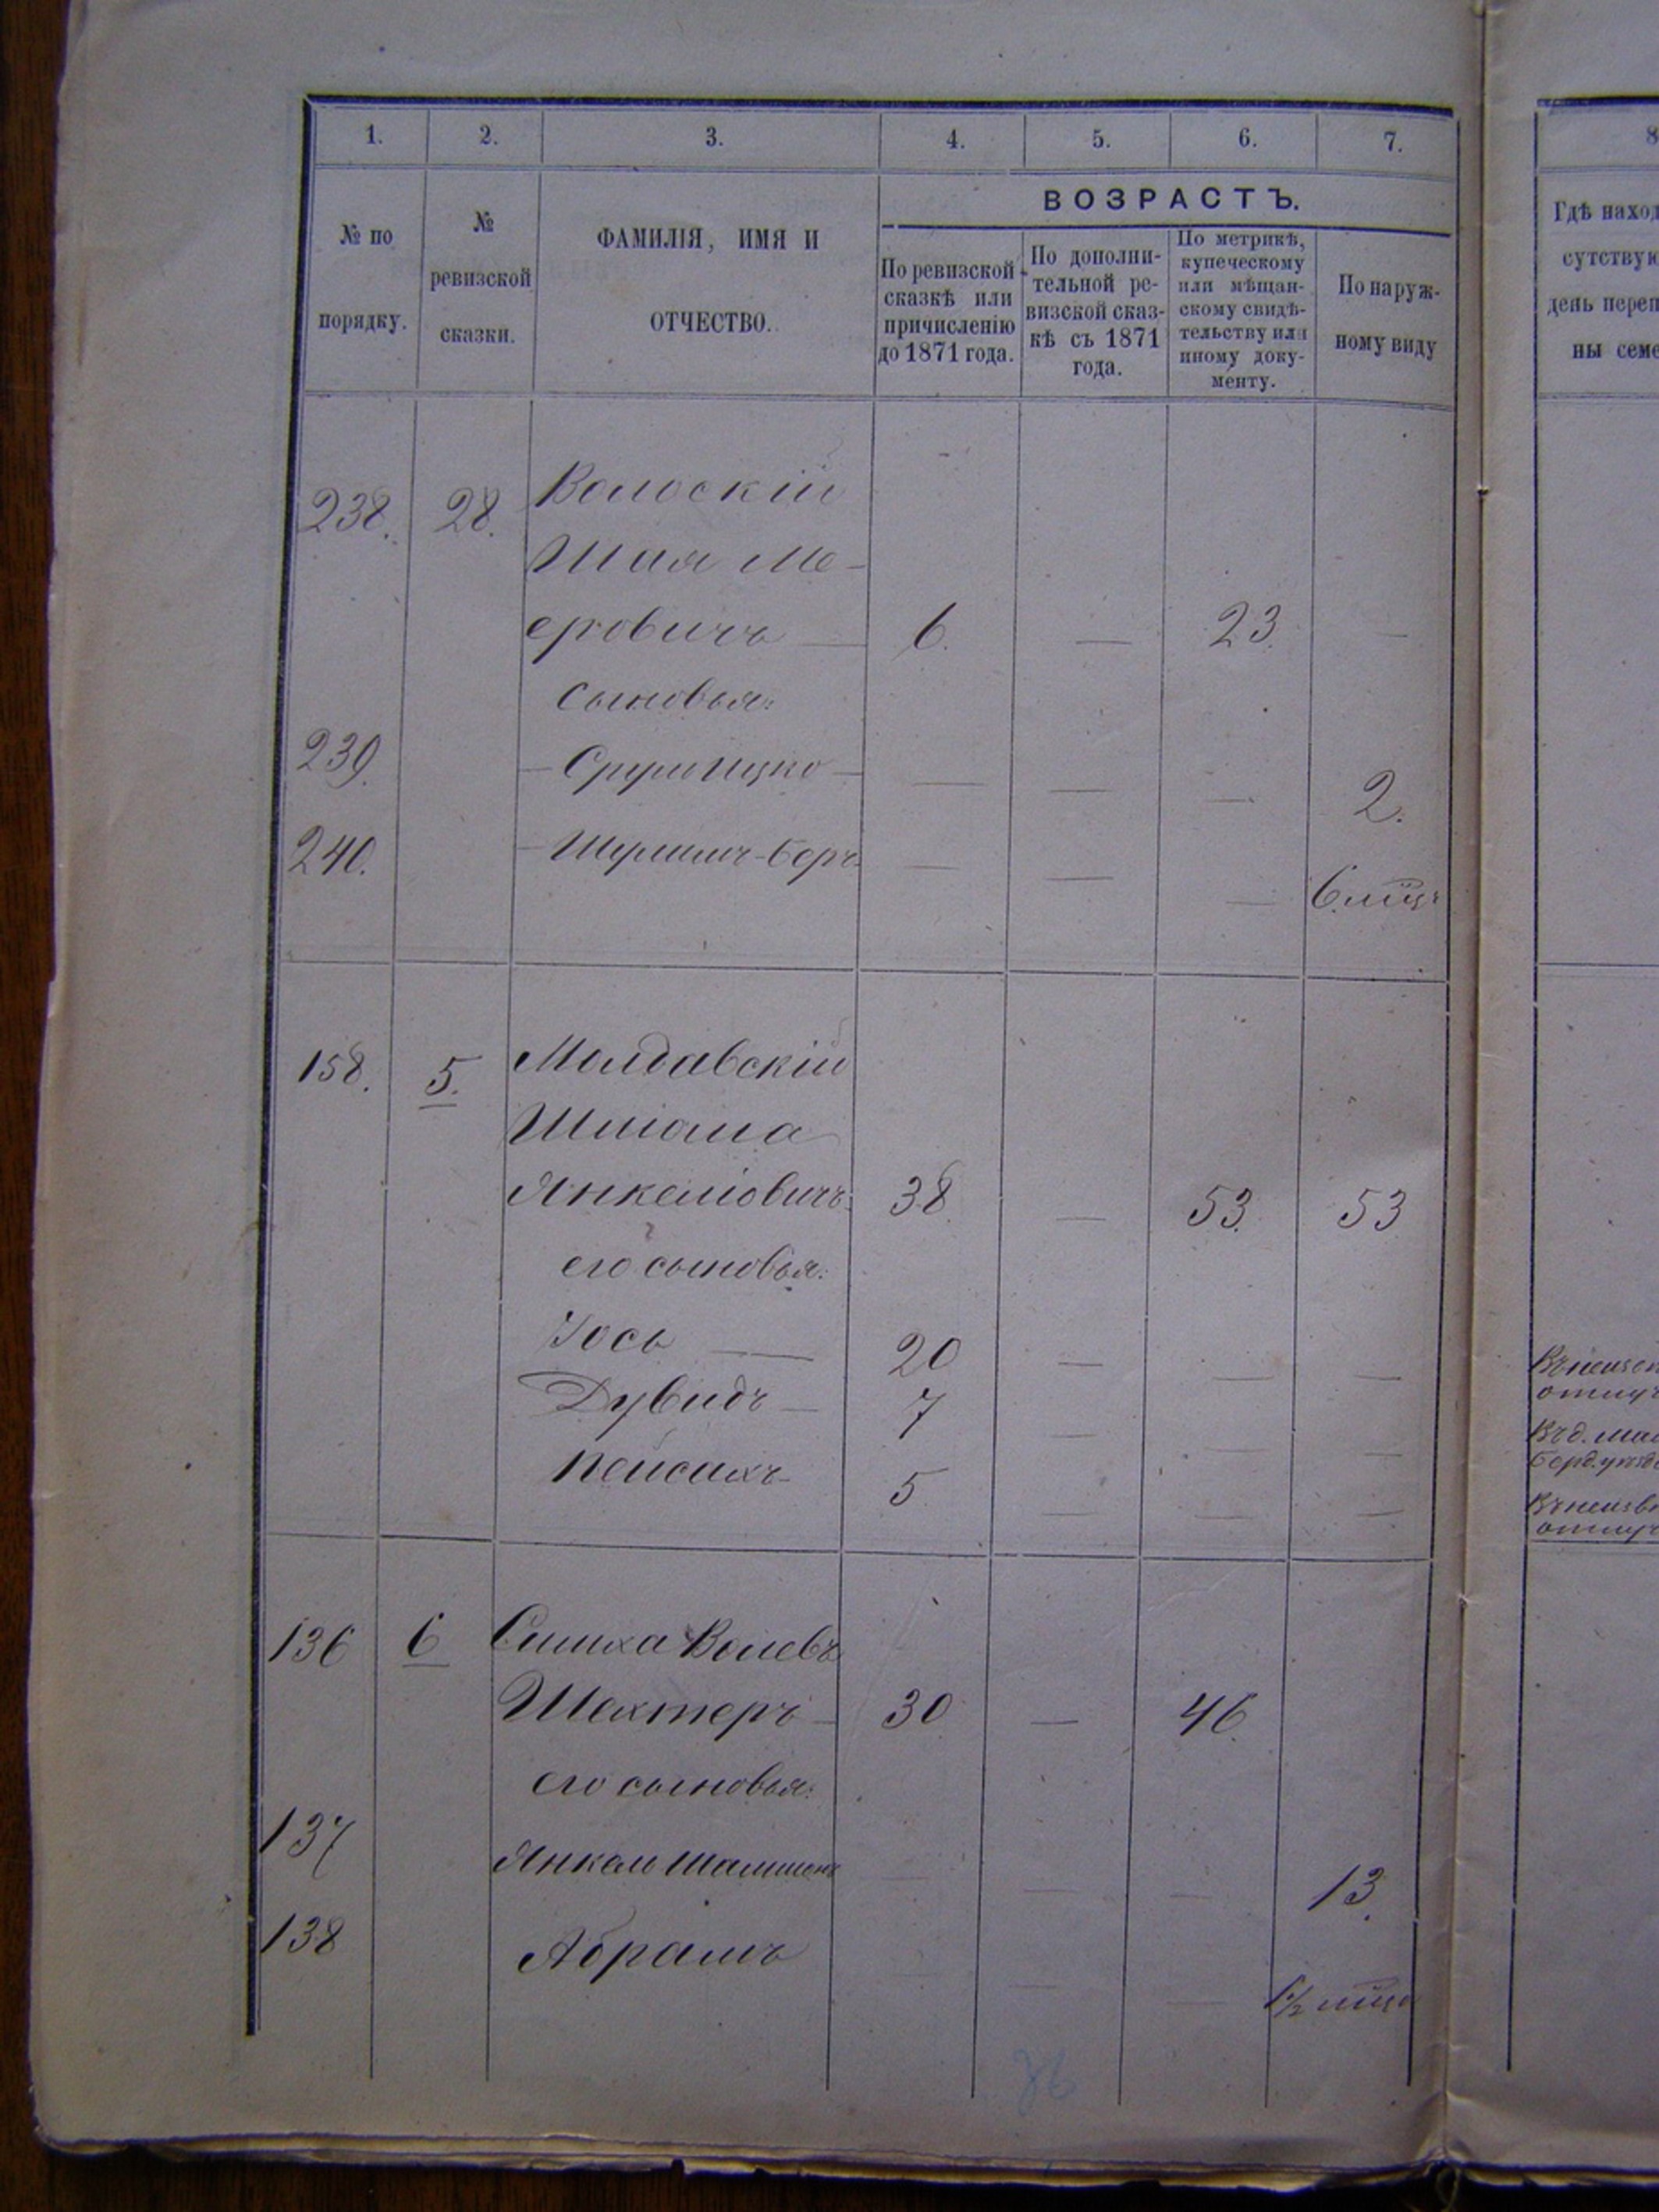 1. 2. 3. 4. 5. 6. 7. 8
№ по
порядку.
№
ревизской
сказки.
ФАМИЛІЯ, ИМЯ И
ОТЧЕСТВО.
ВОЗРАСТЪ.
По ревизской
сказкѣ или
причисленію
до 1871 года.
По дополни-
тельной ре-
визской сказ-
кѣ съ 1871
года.
По метрикѣ,
купеческому
или мѣщан-
скому свидѣ-
тельству или
иному доку-
менту.
По наруж-
ному виду
Гдѣ наход
сутствую
день переп
ны семе
238. 28. Волоскій
Шая Ме-
еровичъ — 6. — 23. —
сыновья:
239. — Сруль Ицко — — — — 2.
240. — Шулимъ-Беръ — — — 6 мцъ
158. 5. Молдавскій
Шмама
Янкелiовичъ 38 — 53. 53
его сыновья:
Iось — 20 — — —
Дувидъ — 7 — — —
Пейсахъ 5 — — —
отлуч
Въ д.
Берд. уѣзд
отлуч
136 6 Симха Волевъ
Шехтеръ — 30 — 46.
его сыновья:
137 Янкель Шамшонъ — — — 13.
138 Абрамъ — — — 1/2 мцъ